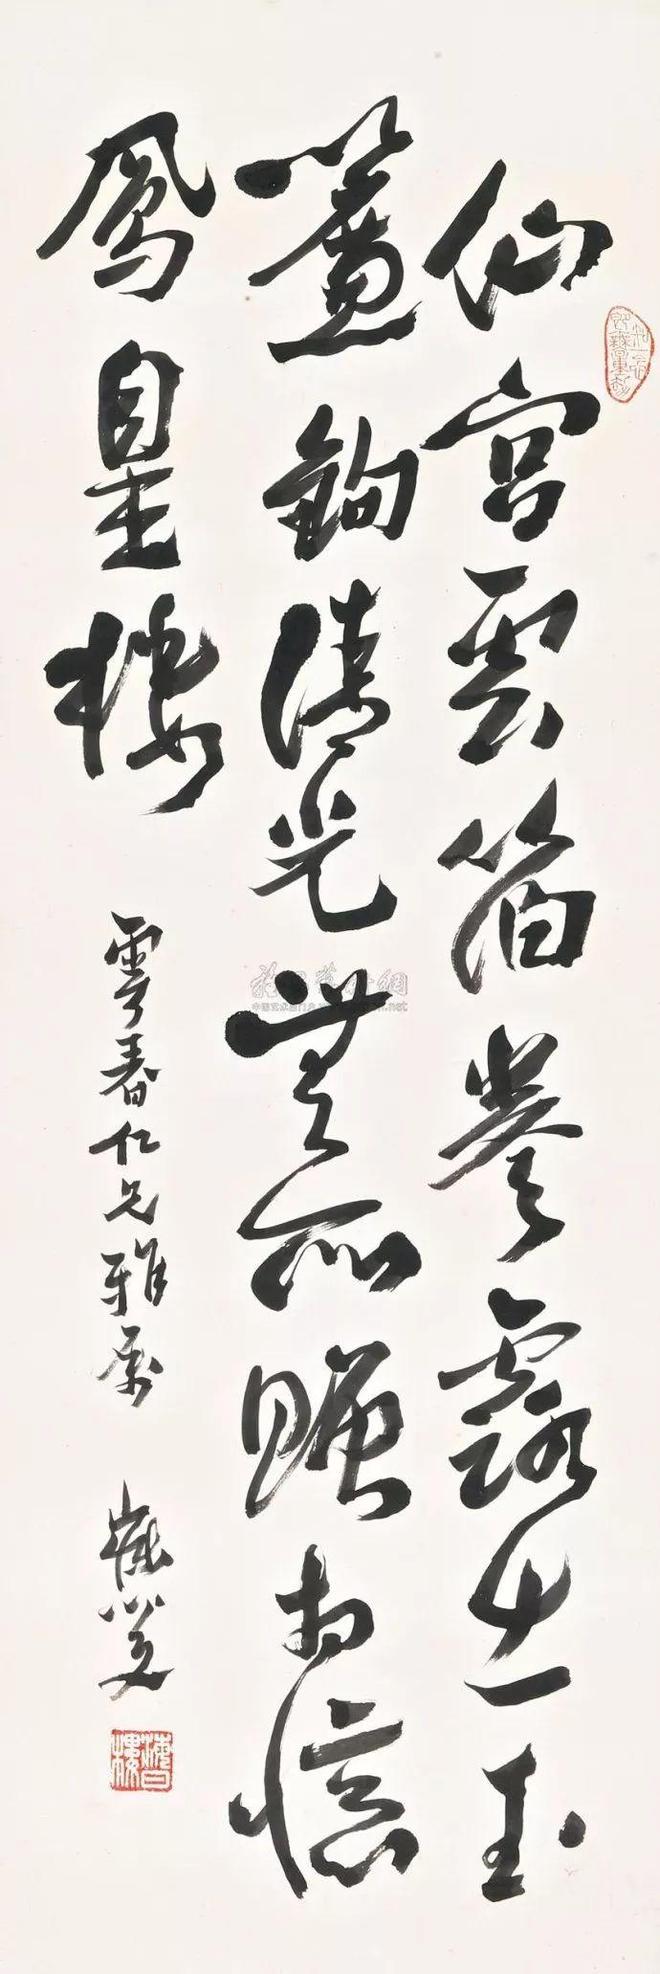 仙宮雲箔卷露出玉
簾鉤清光無所贈相憶
鳳皇樓
春仁兄雅屬